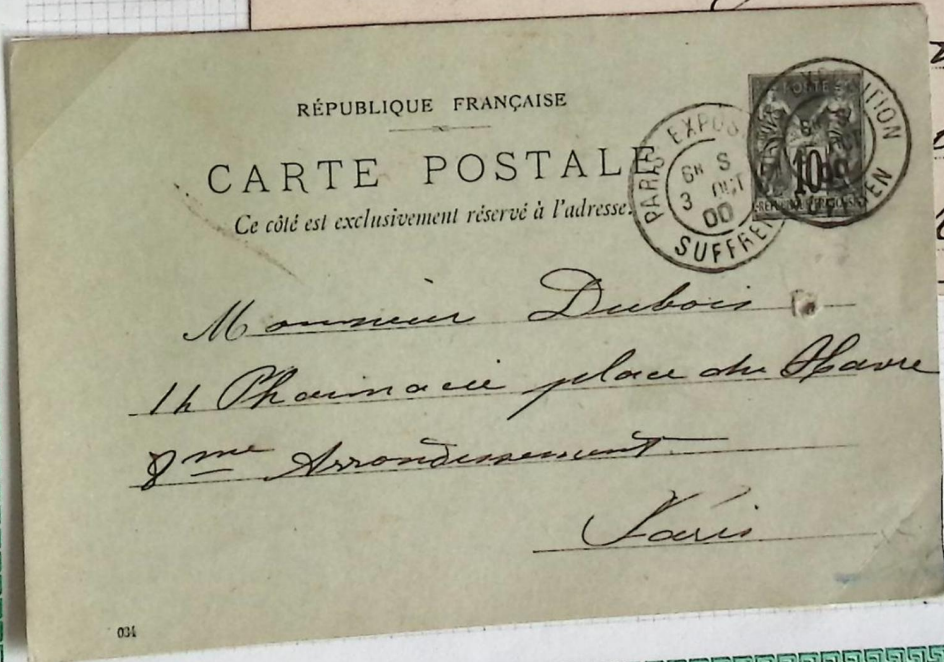 RÉPUBLIQUE FRANÇAISE
CARTE POSTALE
Ce côté est exclusivement réservé à l'adresse.
PARIS EXPOSITION
6E S
3 OCT
00
SUFFREN
POSTES
10
EXPOSITION
SUFFREN
Monsieur Dubois
14 Pharmacie place du Havre
8me Arrondissement
Paris
034